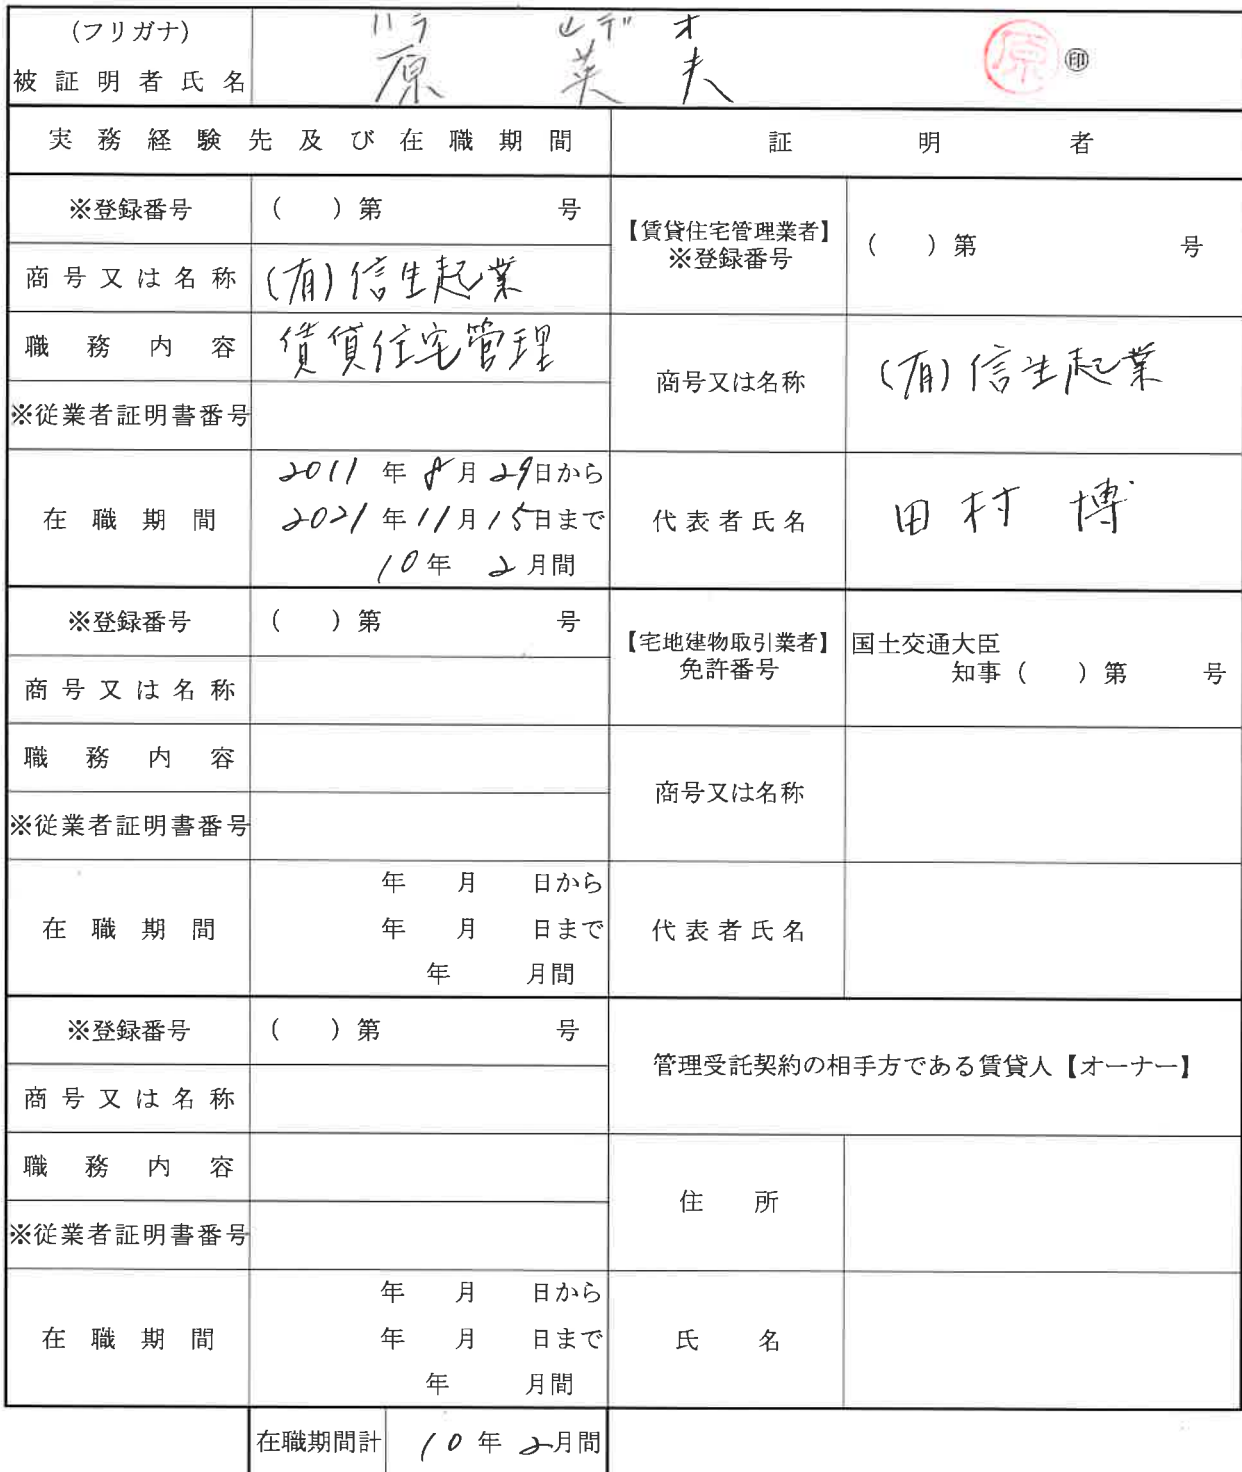 (フリガナ) ハラ ヒデオ
被証明者氏名 原 英夫 原 ㊞
実務経験先及び在職期間 証明者
※登録番号 ( )第 号
【賃貸住宅管理業者】
※登録番号 ( )第 号
商号又は名称 (有)信生起業
職務内容 賃貸住宅管理
商号又は名称 (有)信生起業
※従業者証明書番号
在職期間
2011年8月29日から
2021年11月15日まで
10年2月間
代表者氏名 田村 博
※登録番号 ( )第 号
【宅地建物取引業者】
免許番号
国土交通大臣
知事( )第 号
商号又は名称
職務内容
商号又は名称
※従業者証明書番号
在職期間
年 月 日から
年 月 日まで
年 月間
代表者氏名
※登録番号 ( )第 号
管理受託契約の相手方である賃貸人【オーナー】
商号又は名称
職務内容
住所
※従業者証明書番号
在職期間
年 月 日から
年 月 日まで
年 月間
氏名
在職期間計 10年2月間